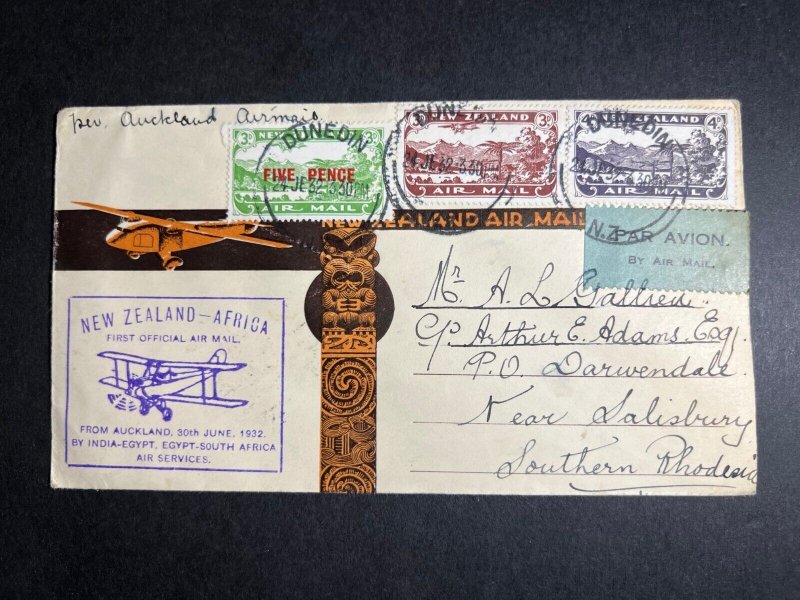 per. Auckland Airmail
3D NEW 3D
FIVE PENCE
AIR MAIL
DUNEDIN
24 JE 32 3.30 PM
3D NEW ZEALAND 3D
AIR MAIL
DUNEDIN
24 JE 32 3.30 PM
4D NEW ZEALAND 4D
AIR MAIL
DUNEDIN
24 JE 32 3.30 PM
N.Z.
NEW ZEALAND AIR MAIL
PAR AVION.
BY AIR MAIL.
NEW ZEALAND - AFRICA
FIRST OFFICIAL AIR MAIL.
FROM AUCKLAND, 30th JUNE, 1932.
BY INDIA-EGYPT, EGYPT-SOUTH AFRICA
AIR SERVICES.
Mr A. L.
C/o Arthur E. Adams. Esq
P.O. Darwendale
Near Salisbury
Southern Rhodesia